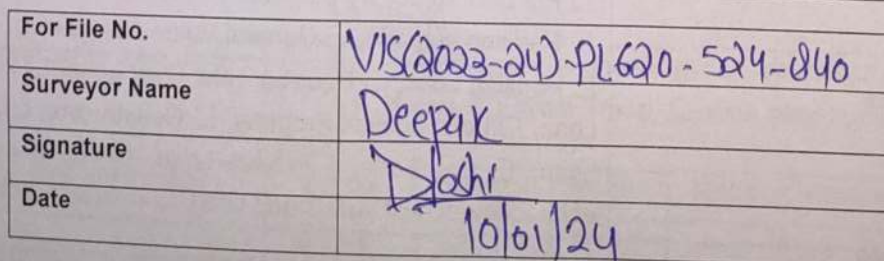 For File No. VIS(2023-24)-PL620-524-840
Surveyor Name Deepak
Signature DJoshi
Date 10/01/24